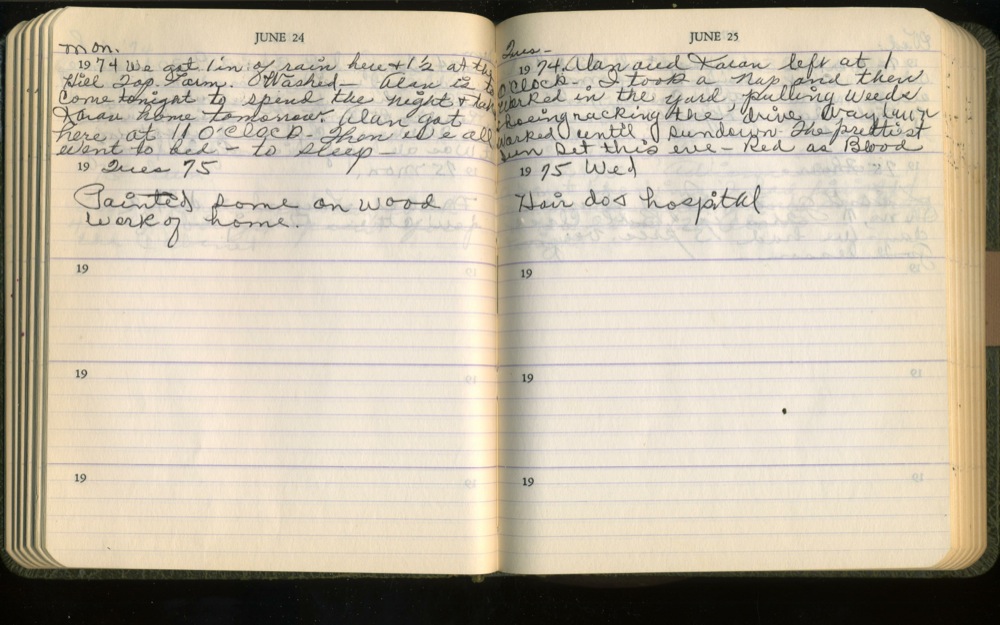 JUNE 24
Mon.
1974 We got 1 in of rain here & 1½ at the
Hill Top Farm. Washed - Alan is to
come tonight to spend the night & take
Karan home tomorrow. Alan got
here at 11 O'CLOCK. Then we all
went to bed - to sleep -
19 Tues 75
Painted some on wood
work of home.
19
19
19
JUNE 25
Tues -
1974. Alan and Karan left at 1
O'CLOCK - I took a nap and then
worked in the yard, pulling weeds
hoeing racking the drive way
worked until sundown - The prettiest
sun set this eve - Red as Blood
1975 Wed
Hair do & hospital
19
19
19